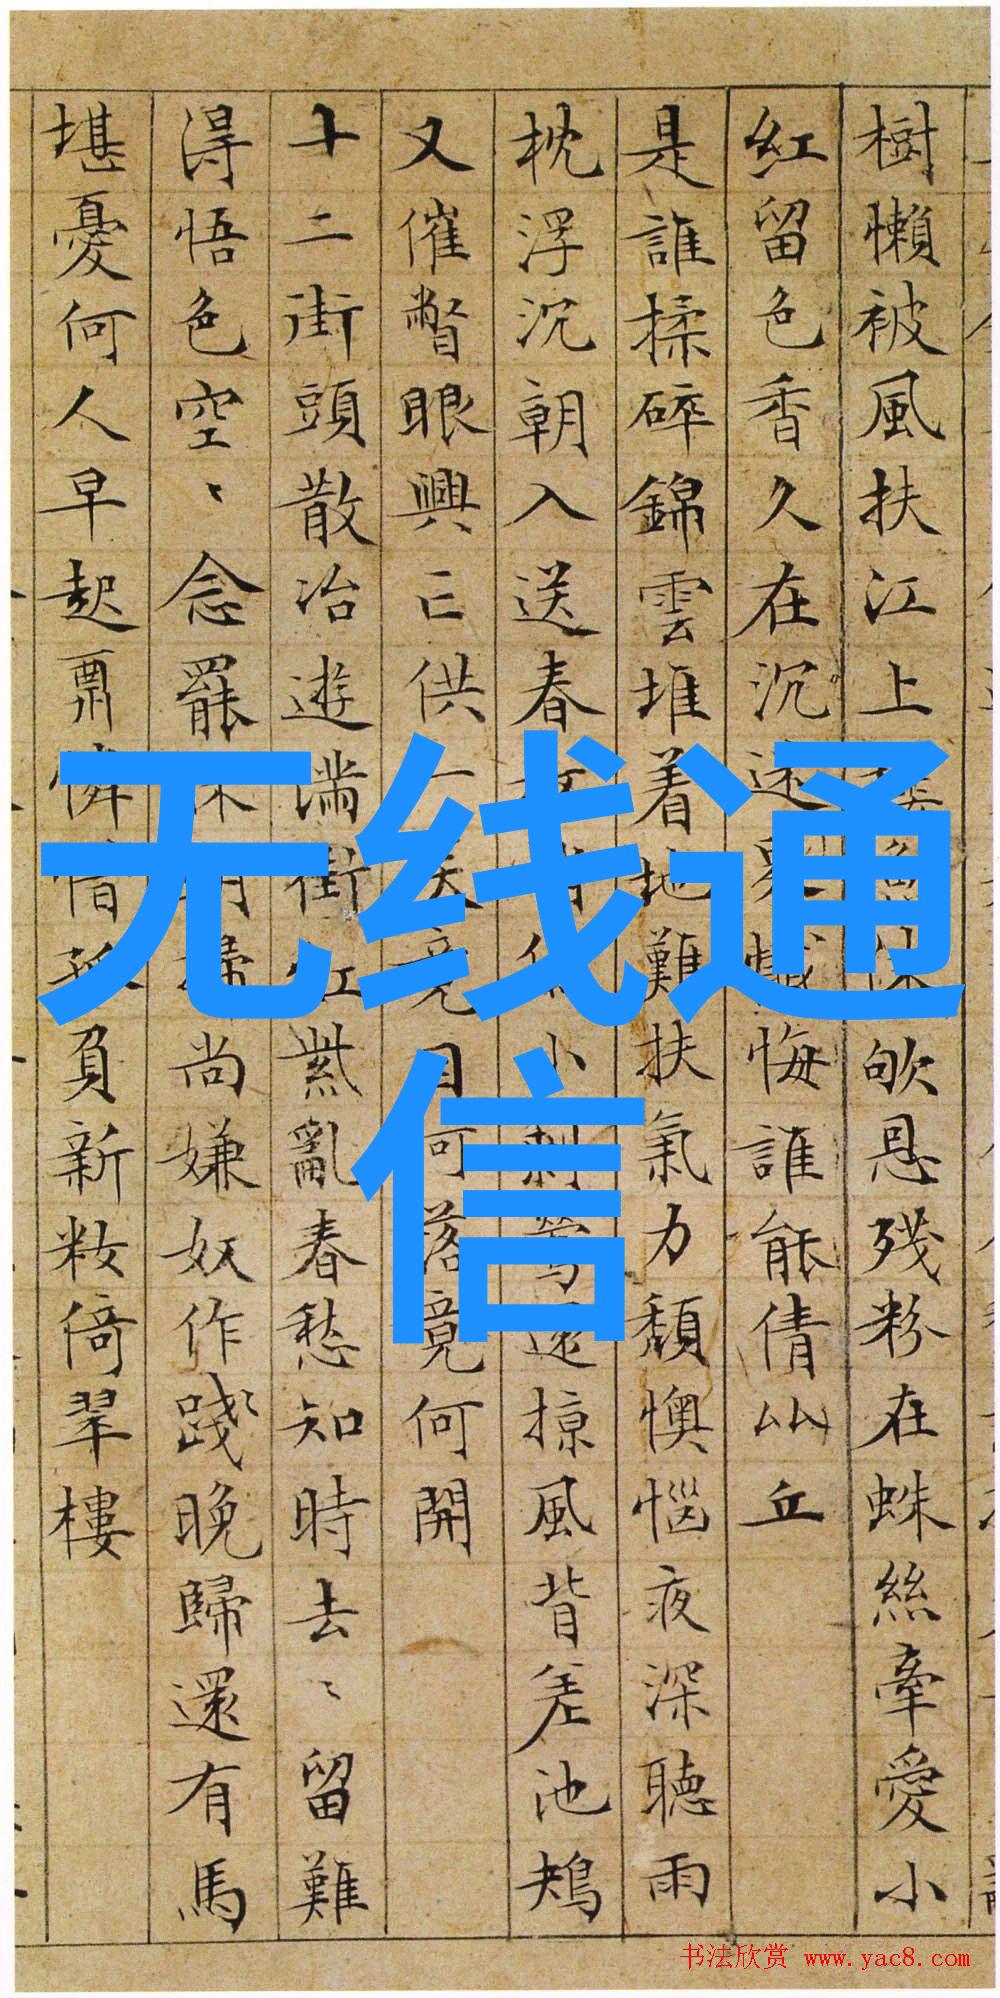 樹懶被風扶江上 欹恩残粉在蛛絲牽愛小
紅留色香久在沉迷 懺悔誰能倩 丘
是誰揉碎錦雲堆着地難扶氣力頹懊惱夜深聽雨
枕浮沉朝入送春 小 掠風背差池
又催瞥眼興亡供一 竟因何落竟何開
十二街頭散冶遊滿街紅紫亂春愁知時去〻留難
得悟色空〻念罷 尚嫌奴作踐〻晚歸還有馬
堪憂何人早起 憐惜 負新粧倚翠樓
无线通
信
书法欣赏 www.yac8.com